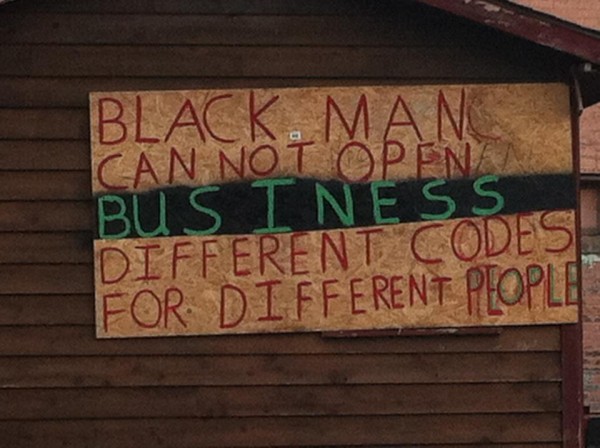 BLACK MAN
CAN NOT OPEN
BUSINESS
DIFFERENT CODES
FOR DIFFERENT PEOPLE